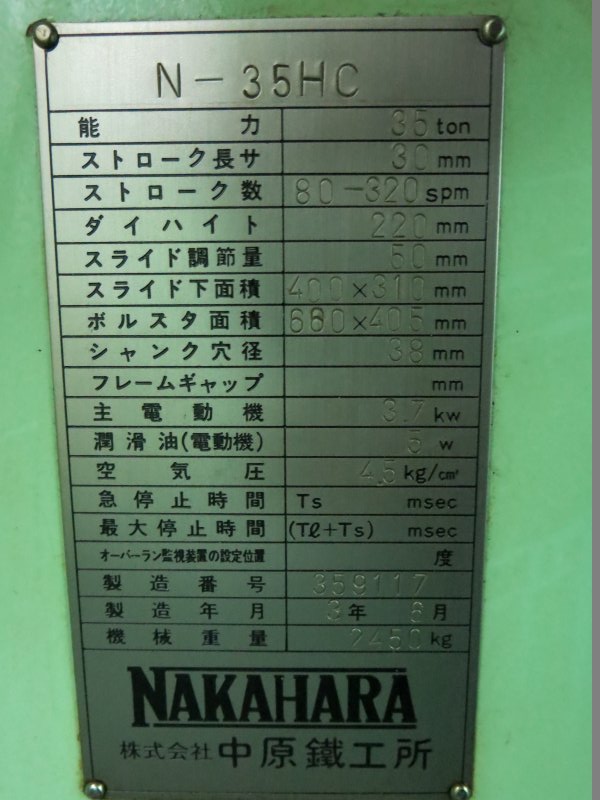 N-35HC
能力 35 ton
ストローク長サ 30 mm
ストローク数 80-320 spm
ダイハイト 220 mm
スライド調節量 50 mm
スライド下面積 400×310 mm
ボルスタ面積 680×405 mm
シャンク穴径 38 mm
フレームギャップ mm
主電動機 3.7 kw
潤滑油(電動機) 5 w
空気圧 4.5 kg/cm²
急停止時間 Ts msec
最大停止時間 (Tℓ+Ts) msec
オーバーラン監視装置の設定位置 度
製造番号 359117
製造年月 3年 6月
機械重量 2450 kg
NAKAHARA
株式会社 中原鐵工所